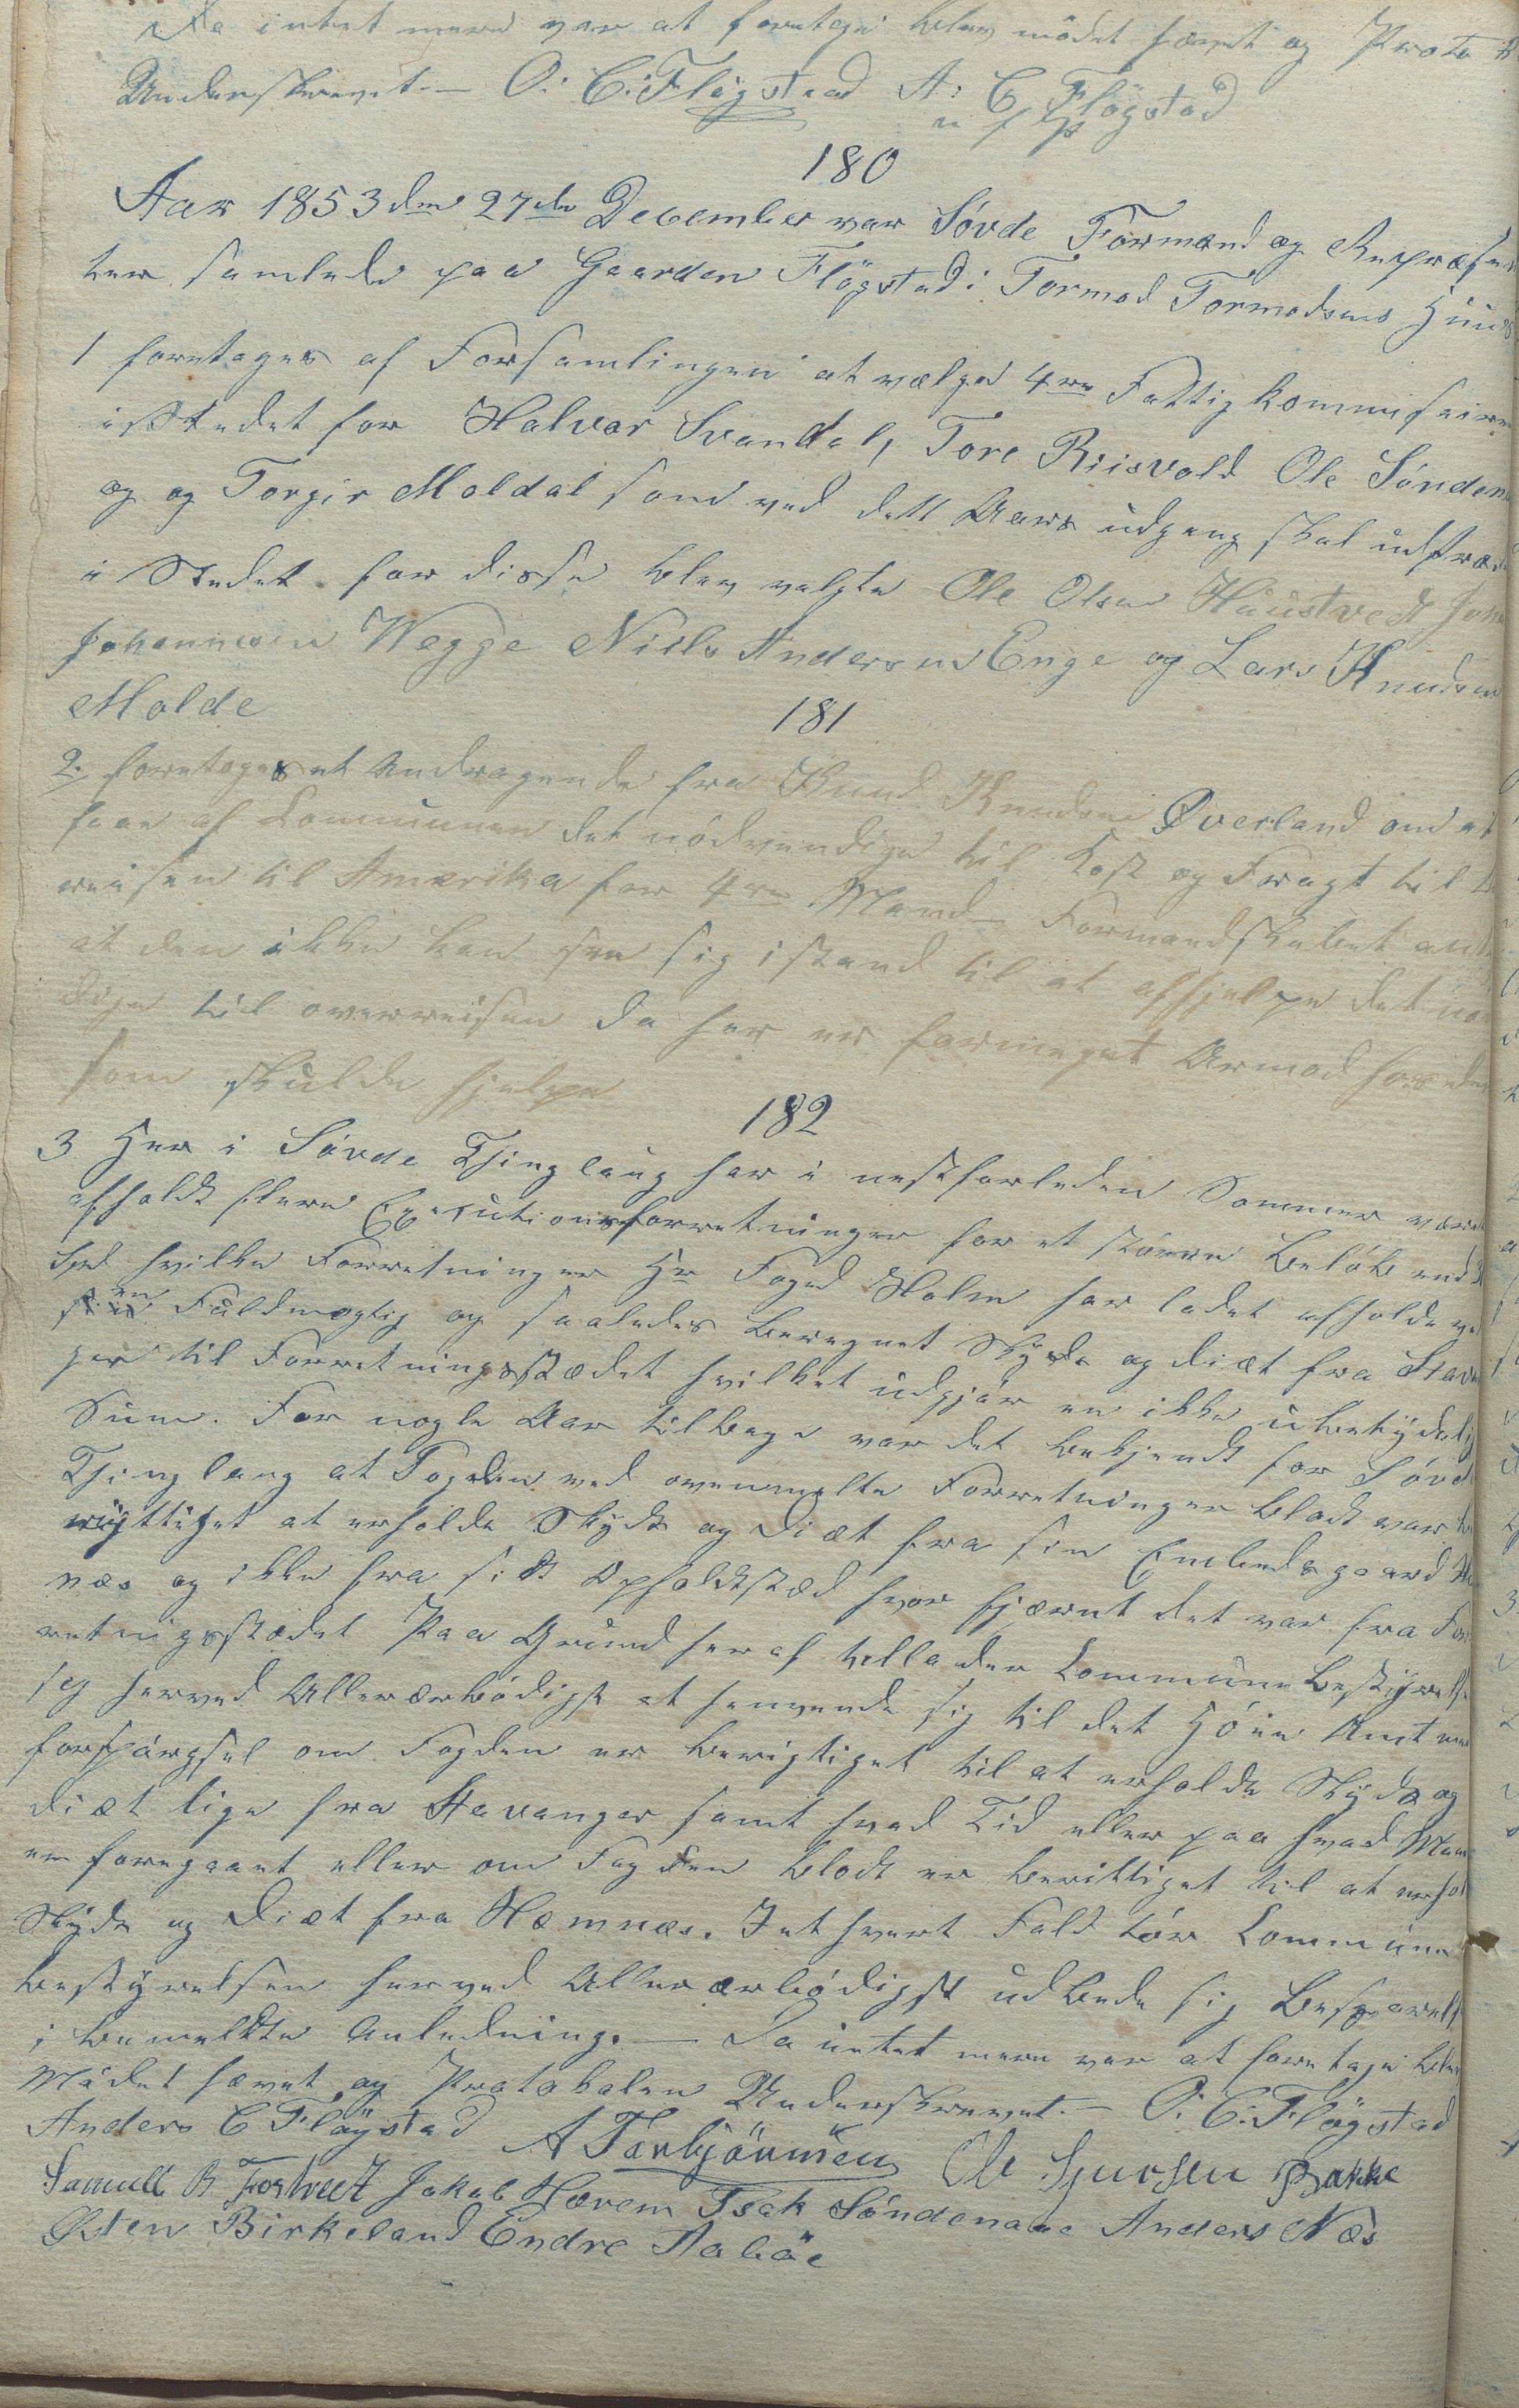 Da intet mere var at foretage blev mödet hævet og Proto
Underskrevet. — O: C: Flögstad A: C Flögstad
180
Aar 1853 den 27de December var Sövde Formænd og Repræsen
ter samlede paa Gaarden Flögstad i Tormod Tormodsens Huus
1 foretoges af Forsamlingen at vælge 4re Fattigkommisairer
istedet for Halvor Svandal, Tore Riisvold Ole Söndena
og og Torgir Moldal som ved dett Aars udgang skal udtræde
i Stedet for disse blev valgte Ole Olsen Haustvedt John
Johannesen Wegge Niels Andersen Enge og Lars Knudsen
Molde
181
2. foretoges et Andragende fra Knud Knudsen Øverland om at
faae af Communen det nödvendige til Kost og Fragt til
reisen til Amerika for 4re Mand Formandskabet ant
at den ikke kan see sig istand til at afhjelpe det nöd
dige til overreisen da her er formeget Armod hos dem
som skulde hjelpe
182
3 Her i Sövde Thinglaug har i nestforleden Sommer været
afholdt flere Executionsforretninger for et större Beløb end
Spd hvilke Forretninger Hr Foged Holm har ladet afholde ve
en Fuldmegtig og saaledes beregnet Skyds og diæt fra Stavan
ger til Forretningsstædet hvilket udgjør en ikke ubetydelig
Sum. For nogle Aar tilbage var det bekjendt for Sövde
Thinglaug at Fogden ved ovenmelte Forretninger blodt var be
rigttiget at erholde Skyds og diæt fra sin Embedsgaard He
næs og ikke fra sit Opholdstæd hvor fjærnt det var fra For
retningsstædet Paa Grund heraf tillader Commune Bestyrelsen
sig herved Allerærbödigst at henvende sig til det Höie Amt med
forspörgsel om Fogden er berigtiget til at erholde Skyds og
diæt lige fra Stavanger samt hvad Tid eller paa hvad Maa
er foregaaet eller om Fogden blodt er berittiget til at erhol
Skyds og Diæt fra Hæmnæs. I et hvert Fald tör Commune
bestyrelsen herved Allerærbödigst udbede sig Besvarelse
i bemeldte Anledning. — Da intet mere var at foretage blev
Mödet hævet og Protokolen Underskrevet. — O: C: Flögstad
Anders C Flögstad A Torbjörnsen Ole Sjursen Bakke
Samuel B Fostveit Jakob Hærem Isak Söndenaae Anders Næs
Østen Birkeland Endre Aaböe